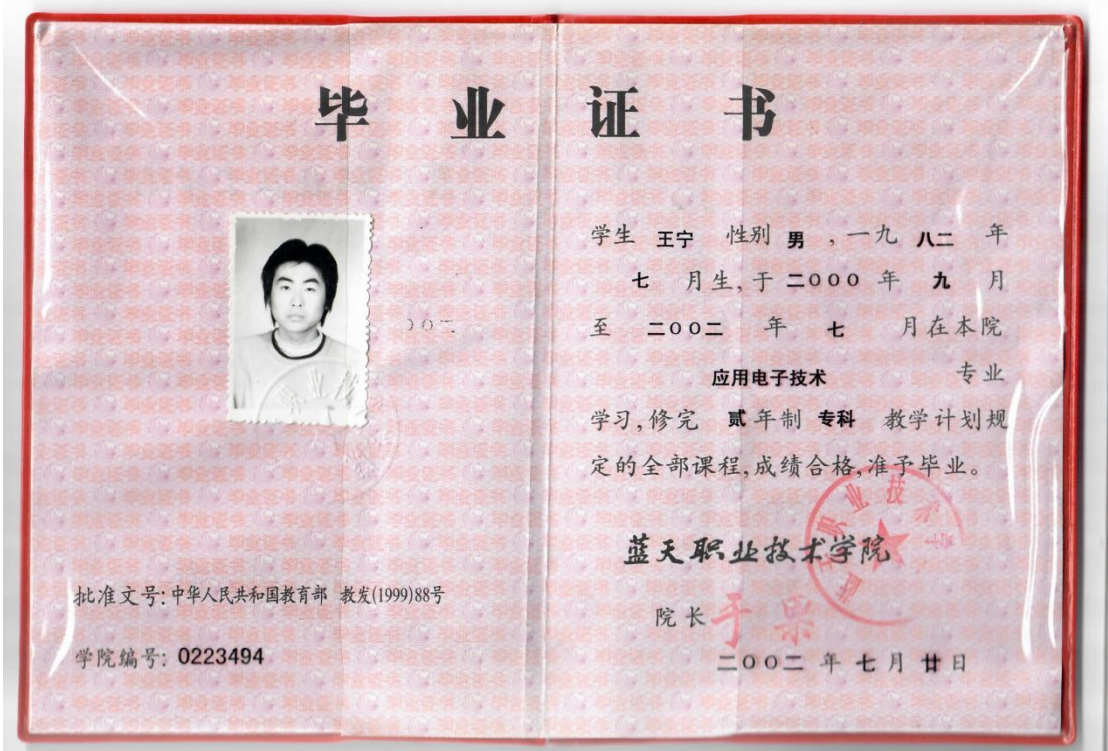 毕业证书
学生 王宁 性别 男 ,一九 八二 年
七 月生,于 二000 年 九 月
至 二00二 年 七 月在本院
应用电子技术 专业
学习,修完 贰年制 专科 教学计划规
定的全部课程,成绩合格,准予毕业。
蓝天职业技术学院
院长 于果
二00二 年 七 月 廿 日
批准文号:中华人民共和国教育部 教发(1999)88号
学院编号: 0223494